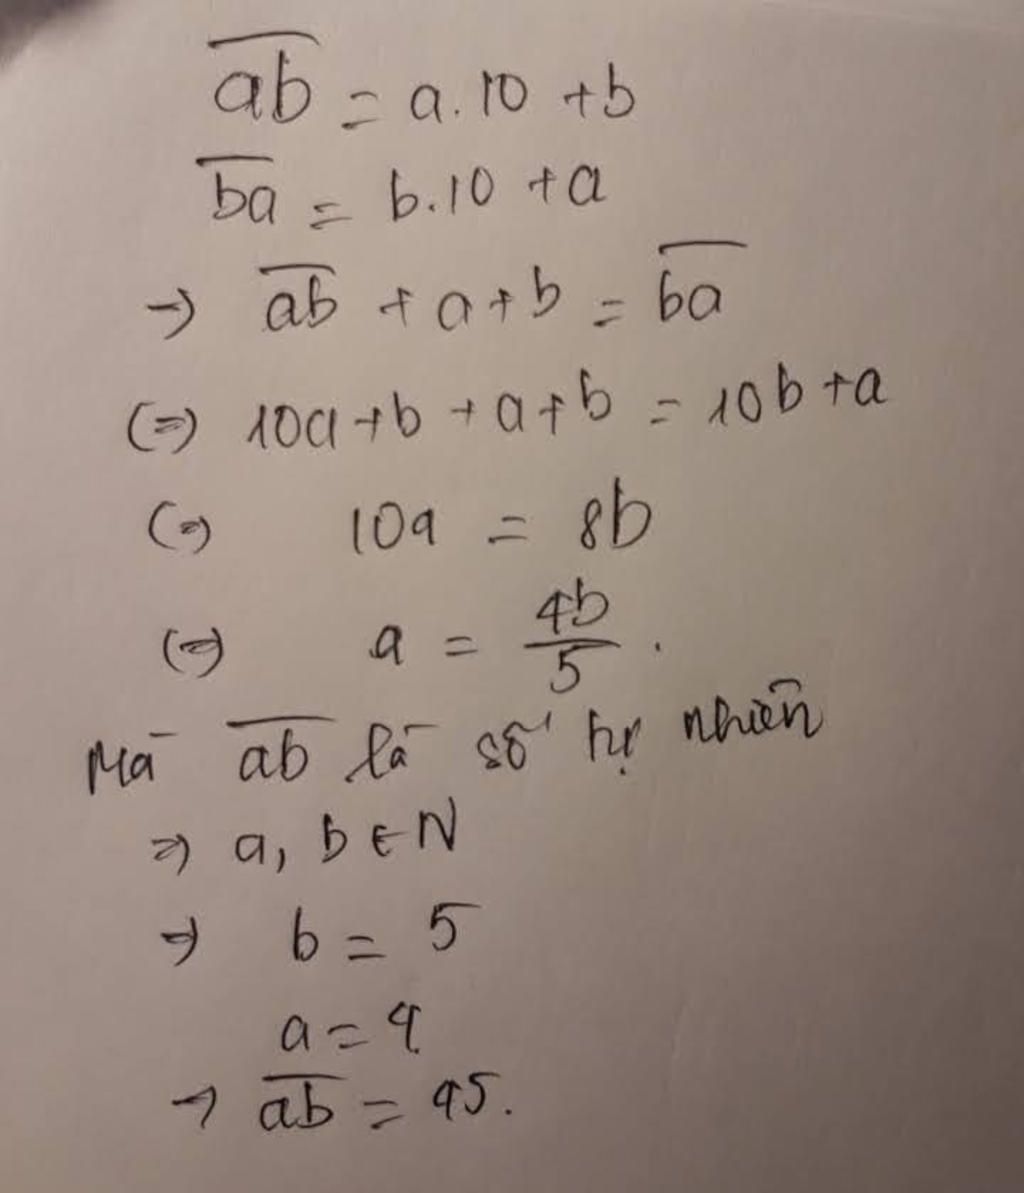 \overline{ab} = a.10 + b
\overline{ba} = b.10 + a
→ \overline{ab} + a + b = \overline{ba}
(=) 10a + b + a + b = 10b + a
(=) 10a = 8b
(=) a = \frac{4b}{5}.
Mà \overline{ab} là số tự nhiên
=> a, b ∈ N
=> b = 5
a = 4
→ \overline{ab} = 45.